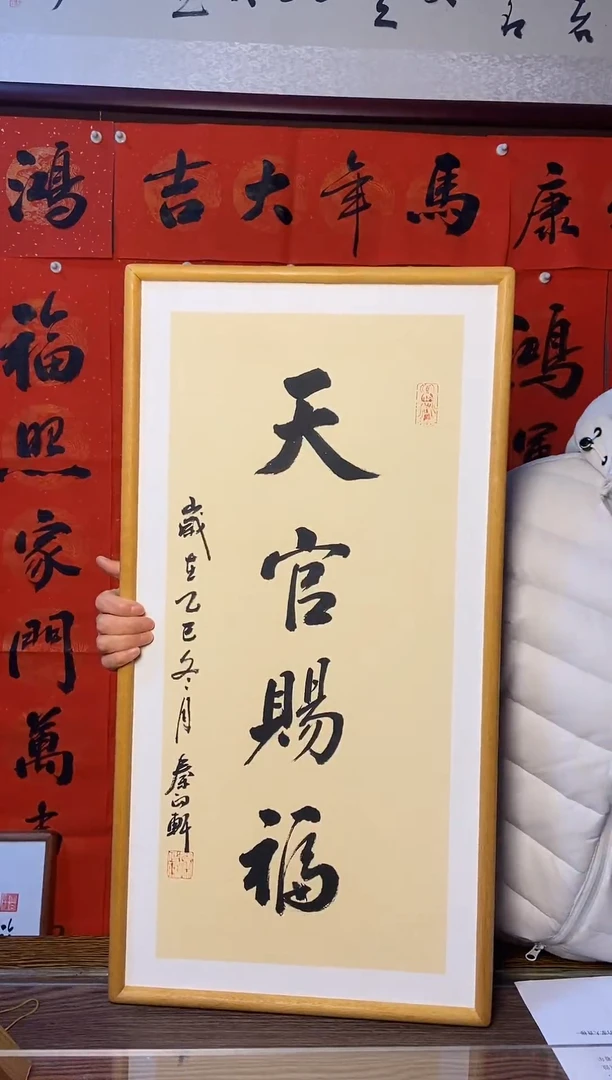 天官賜福
歲在乙巳冬月
秦白軒
鴻
吉大年馬
康
福照家門萬
鴻